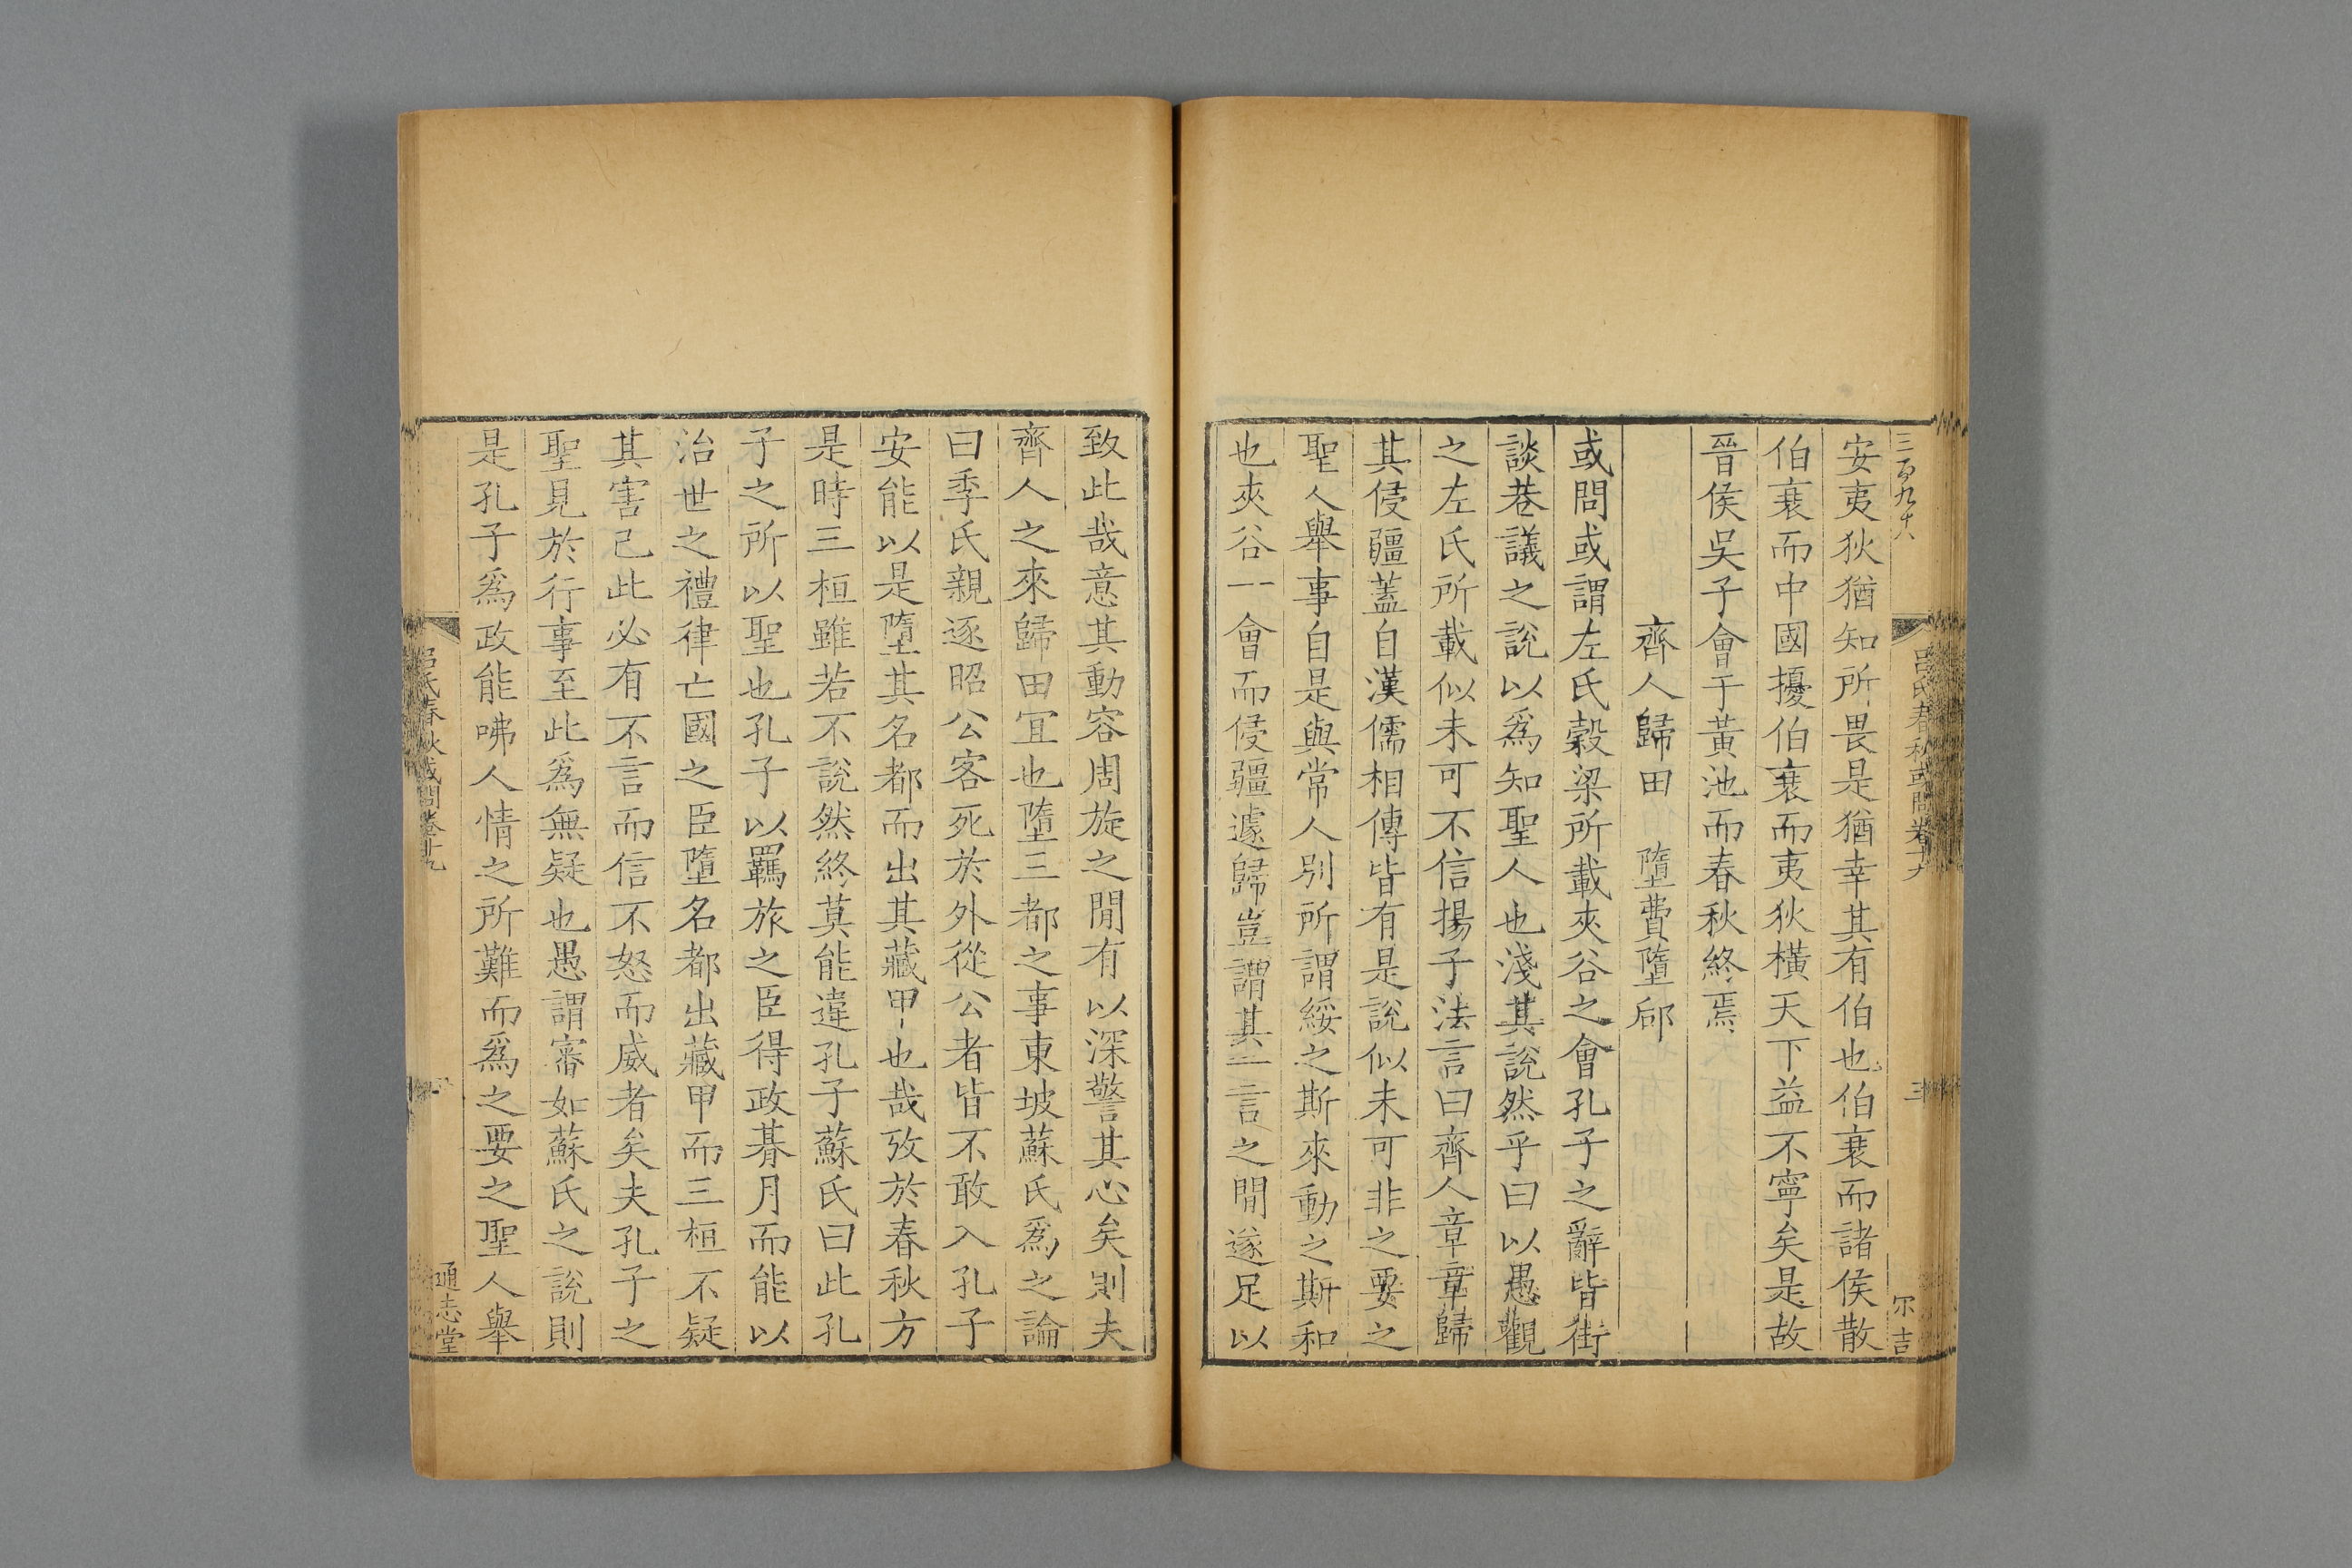 三百九十八
呂氏春秋或問卷十九
三
尔吉
安夷狄猶知所畏是猶幸其有伯也伯衰而諸侯散
伯衰而中國擾伯衰而夷狄橫天下益不寧矣是故
晉侯吳子會于黃池而春秋終焉
齊人歸田 墮費墮郈
或問或謂左氏穀梁所載夾谷之會孔子之辭皆街
談巷議之說以爲知聖人也淺其說然乎曰以愚觀
之左氏所載似未可不信揚子法言曰齊人章章歸
其侵疆蓋自漢儒相傳皆有是說似未可非之要之
聖人舉事自是與常人別所謂綏之斯來動之斯和
也夾谷一會而侵疆遽歸豈謂其一言之閒遂足以
致此哉意其動容周旋之閒有以深警其心矣則夫
齊人之來歸田宜也墮三都之事東坡蘇氏爲之論
曰季氏親逐昭公客死於外從公者皆不敢入孔子
安能以是墮其名都而出其藏甲也哉攷於春秋方
是時三桓雖若不說然終莫能違孔子蘇氏曰此孔
子之所以聖也孔子以羈旅之臣得政朞月而能以
治世之禮律亡國之臣墮名都出藏甲而三桓不疑
其害己此必有不言而信不怒而威者矣夫孔子之
聖見於行事至此爲無疑也愚謂審如蘇氏之說則
是孔子爲政能咈人情之所難而爲之要之聖人舉
呂氏春秋或問卷十九
通志堂